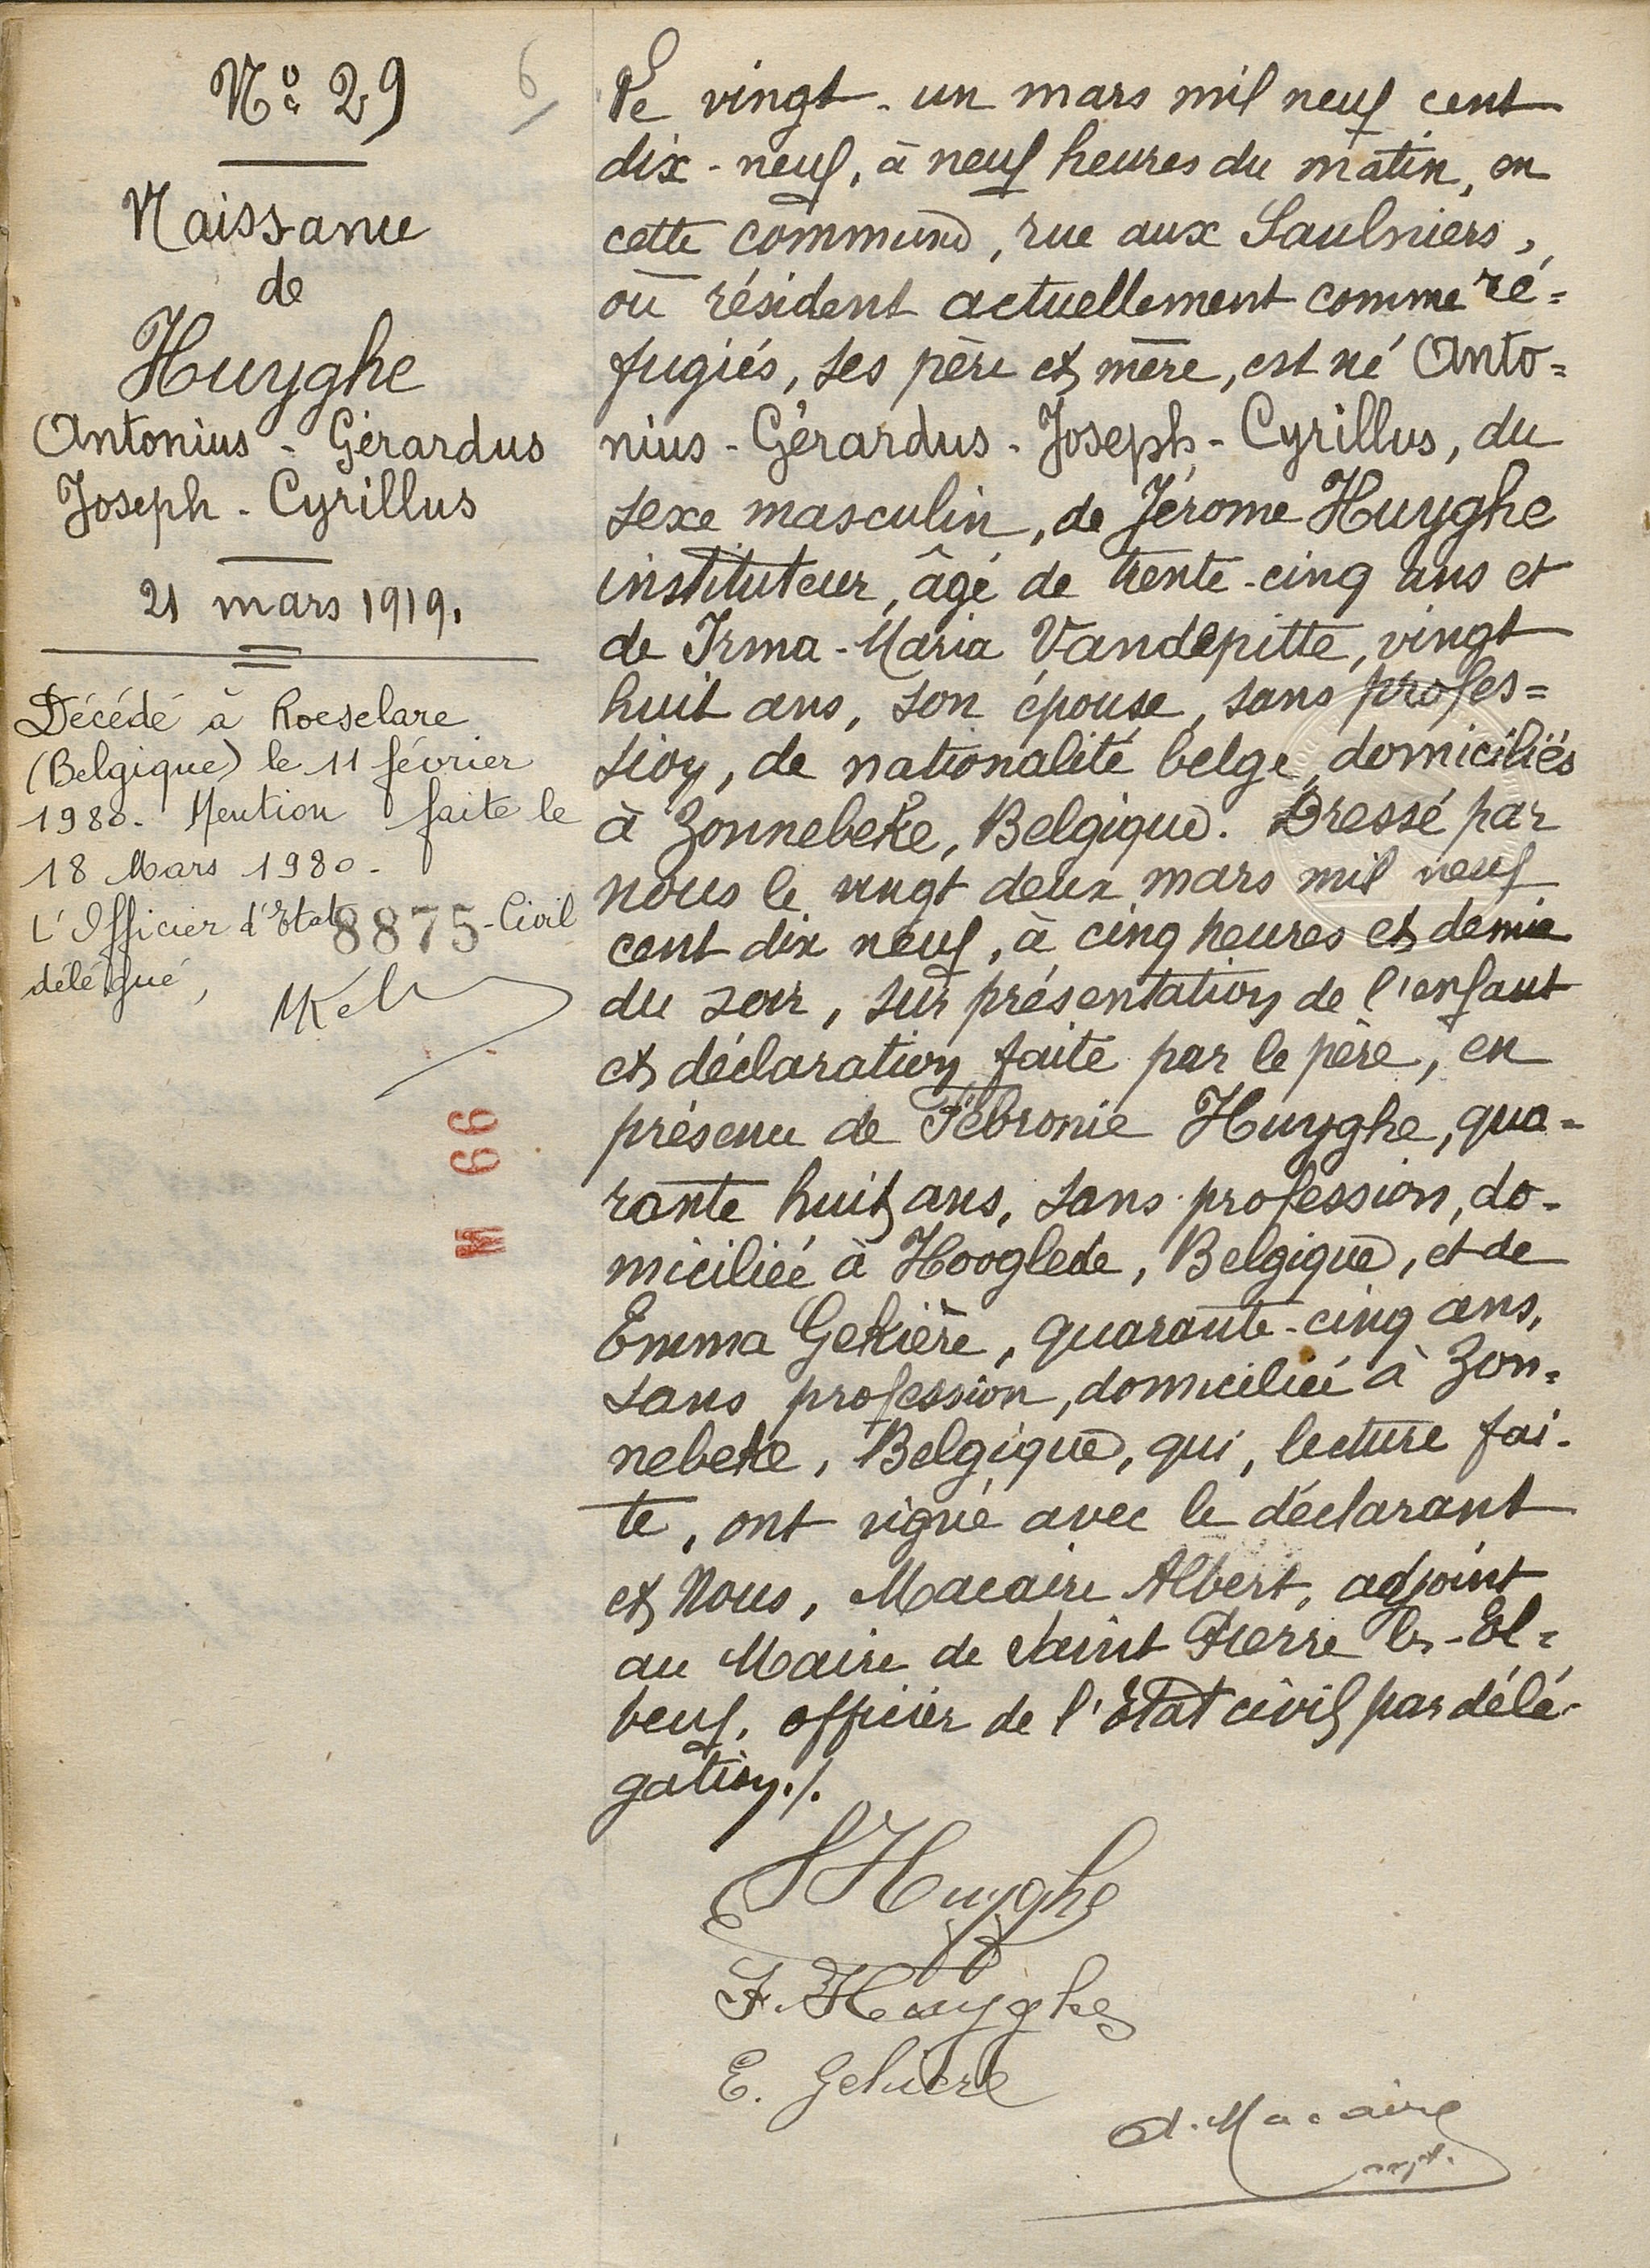 Nº 29
6
Naissance
de
Huyghe
Antonius - Gérardus
Joseph - Cyrillus
21 mars 1919.
Décédé à Roeselare
(Belgique) le 11 février
1980. Mention faite le
18 Mars 1980.
L'Officier d'Etat-Civil
8875
délégué,
M 66
Le vingt-un mars mil neuf cent
dix-neuf, à neuf heures du matin, en
cette commune, rue aux Saulniers,
où résident actuellement comme ré=
fugiés, ses père et mère, est né Anto=
nius - Gérardus - Joseph - Cyrillus, du
sexe masculin, de Jérome Huyghe
instituteur, âgé de trente-cinq ans et
de Irma-Maria Vandepitte, vingt
huit ans, son épouse, sans profes=
sion, de nationalité belge, domiciliés
à Zonnebeke, Belgique. Dressé par
nous le vingt deux mars mil neuf
cent dix neuf, à cinq heures et demie
du soir, sur présentation de l'enfant
et déclaration faite par le père, en
présence de Fébronie Huyghe, qua-
rante huit ans, sans profession, do-
miciliée à Hooglede, Belgique, et de
Emma Gekière, quarante-cinq ans,
sans profession, domiciliée à Zon=
nebeke, Belgique, qui, lecture fai-
te, ont signé avec le déclarant
et Nous, Macaire Albert, adjoint
au Maire de Saint Pierre les-El=
beuf, officier de l'Etat civil par délé-
gation./.
J Huyghe
F. Huyghe
E. Gekiere
A. Macaire